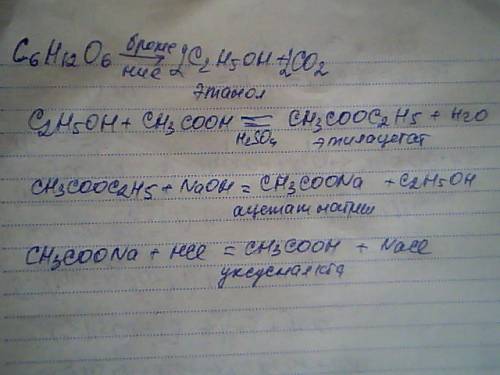 C6H12O6 броже ние → 2C2H5OH + 2CO2
этанол
C2H5OH + CH3COOH = CH3COOC2H5 + H2O
H2SO4 этилацетат
CH3COOC2H5 + NaOH = CH3COONa + C2H5OH
ацетат натрия
CH3COONa + HCl = CH3COOH + NaCl
уксусная к-та